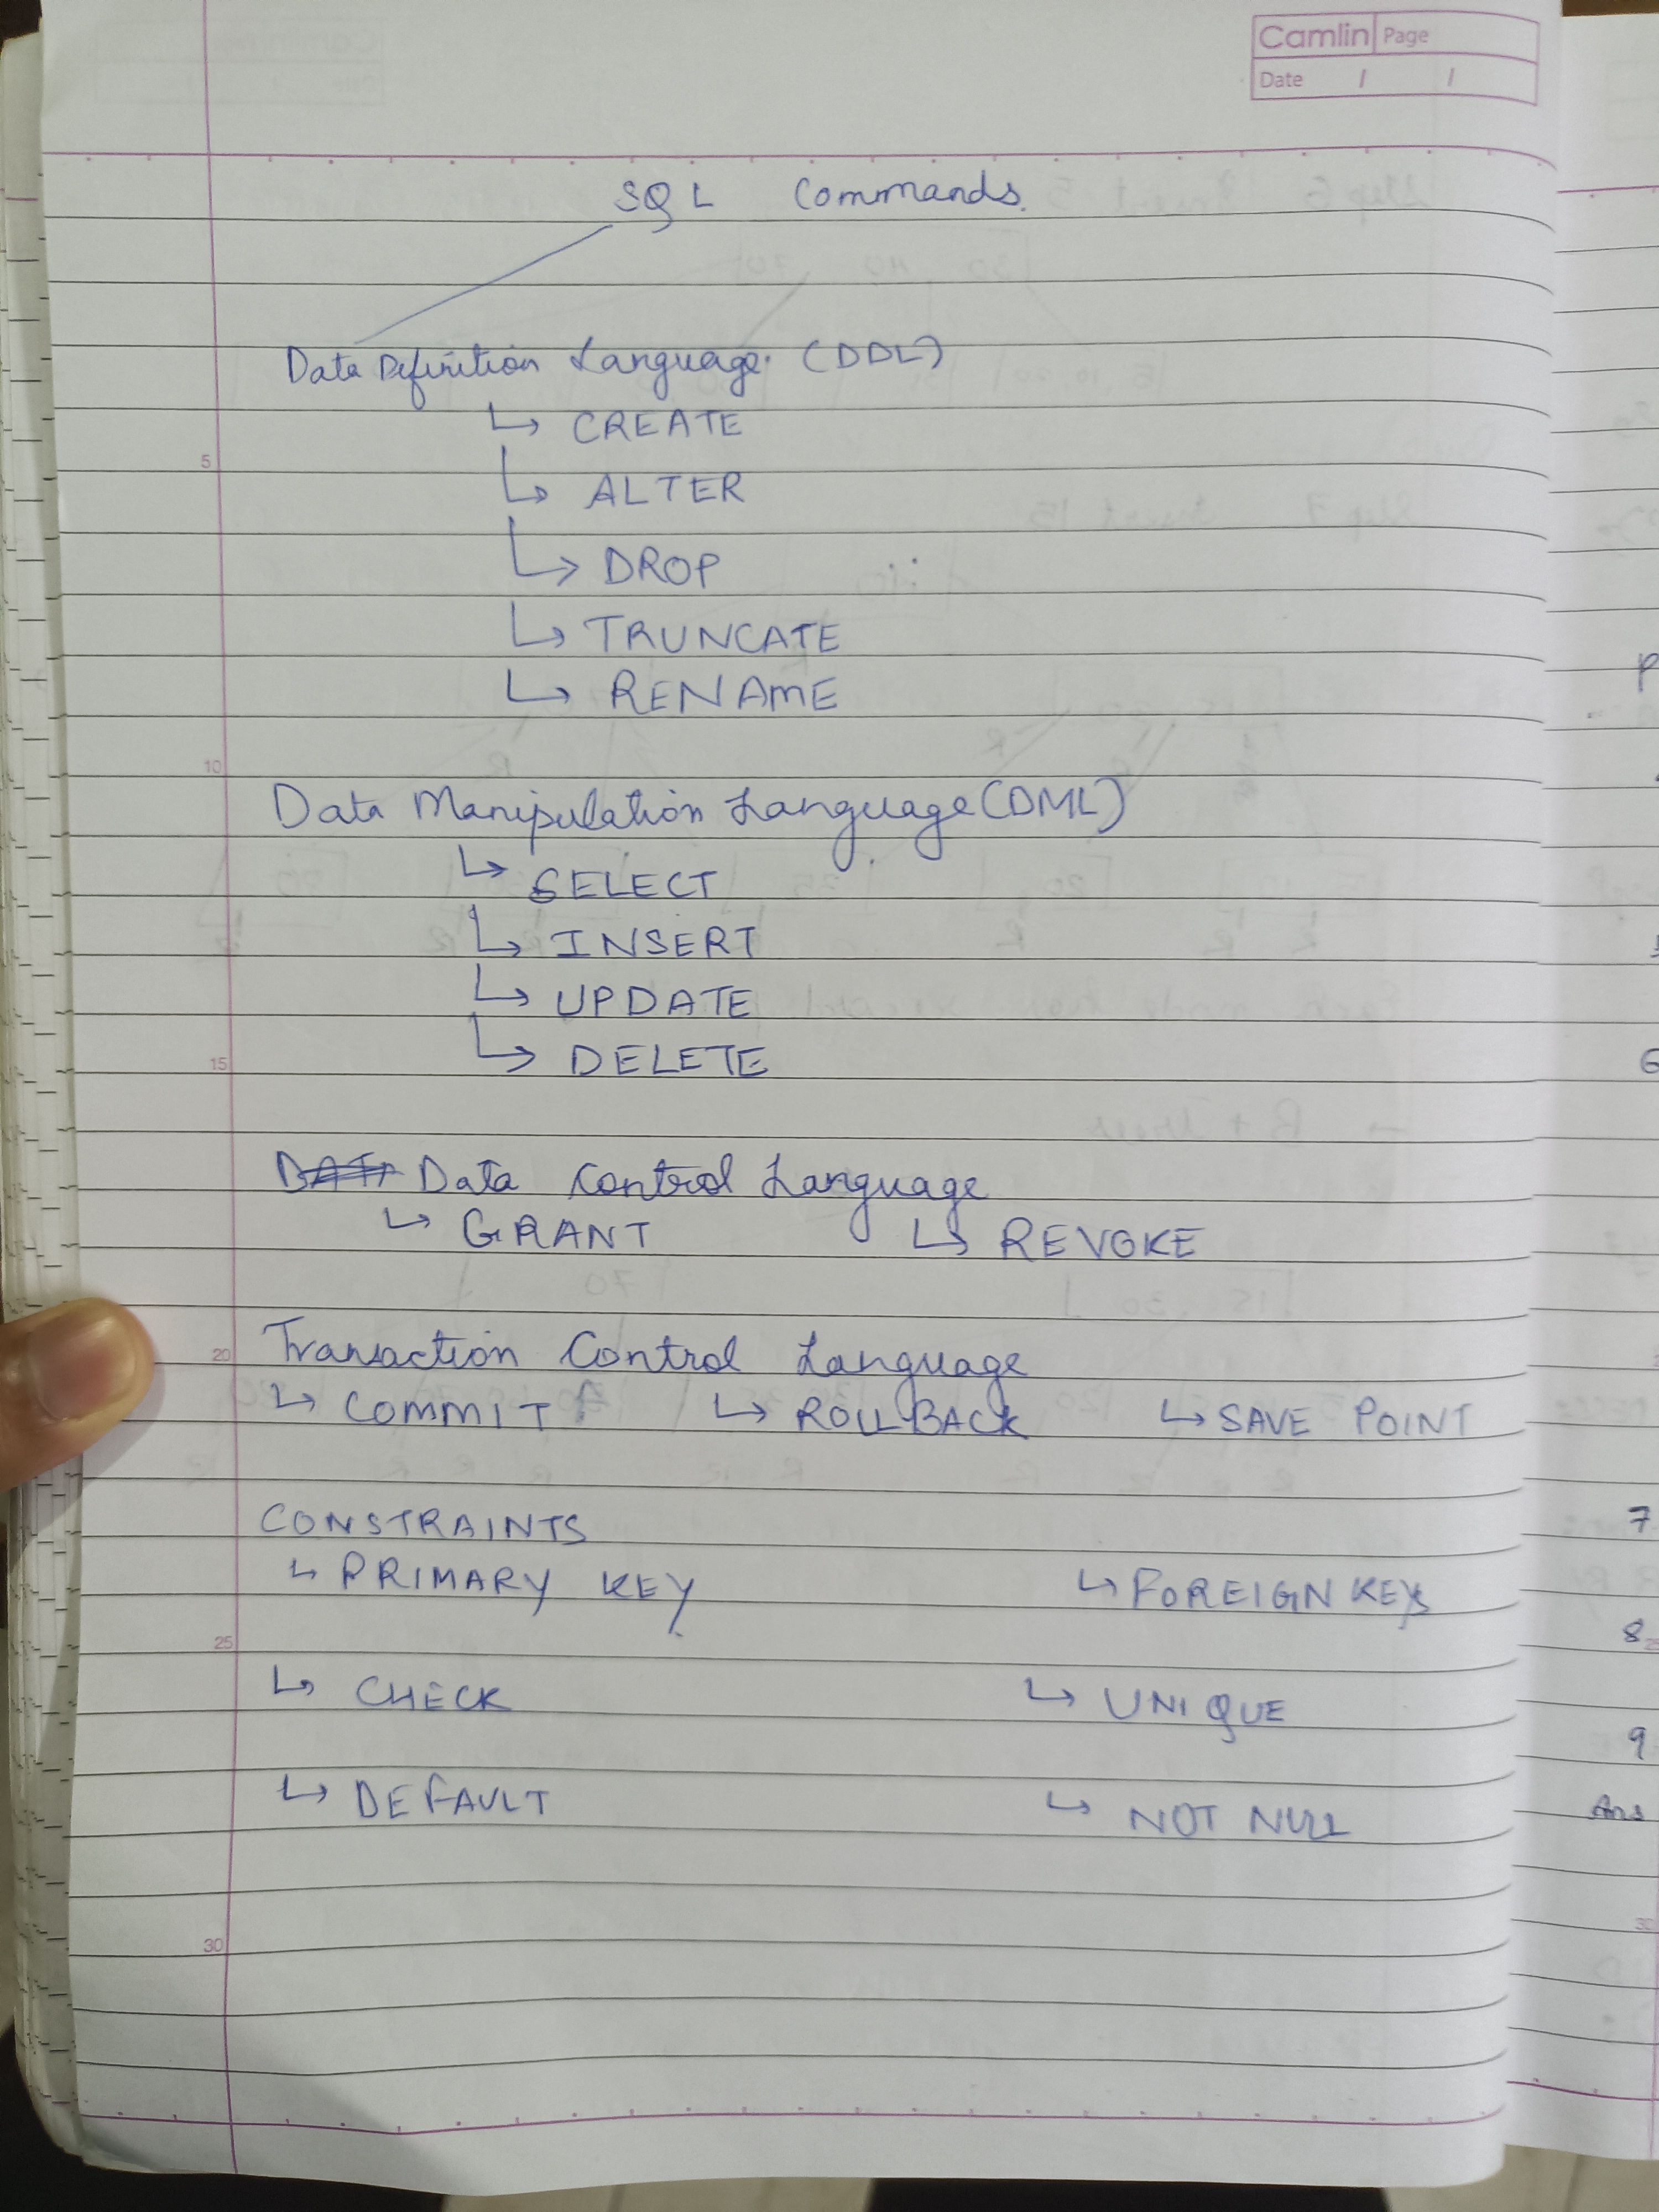 Camlin Page
Date / /
SQL Commands.
Data Definition Language. (DDL)
↳ CREATE
↳ ALTER
↳ DROP
↳ TRUNCATE
↳ RENAME
Data Manipulation Language (DML)
↳ SELECT
↳ INSERT
↳ UPDATE
↳ DELETE
Data Control Language
↳ GRANT ↳ REVOKE
Transaction Control Language
↳ COMMIT ↳ ROLLBACK ↳ SAVE POINT
CONSTRAINTS
↳ PRIMARY KEY ↳ FOREIGN KEY
↳ CHECK ↳ UNIQUE
↳ DEFAULT ↳ NOT NULL
5
10
15
20
25
30
7
8
9
Ans